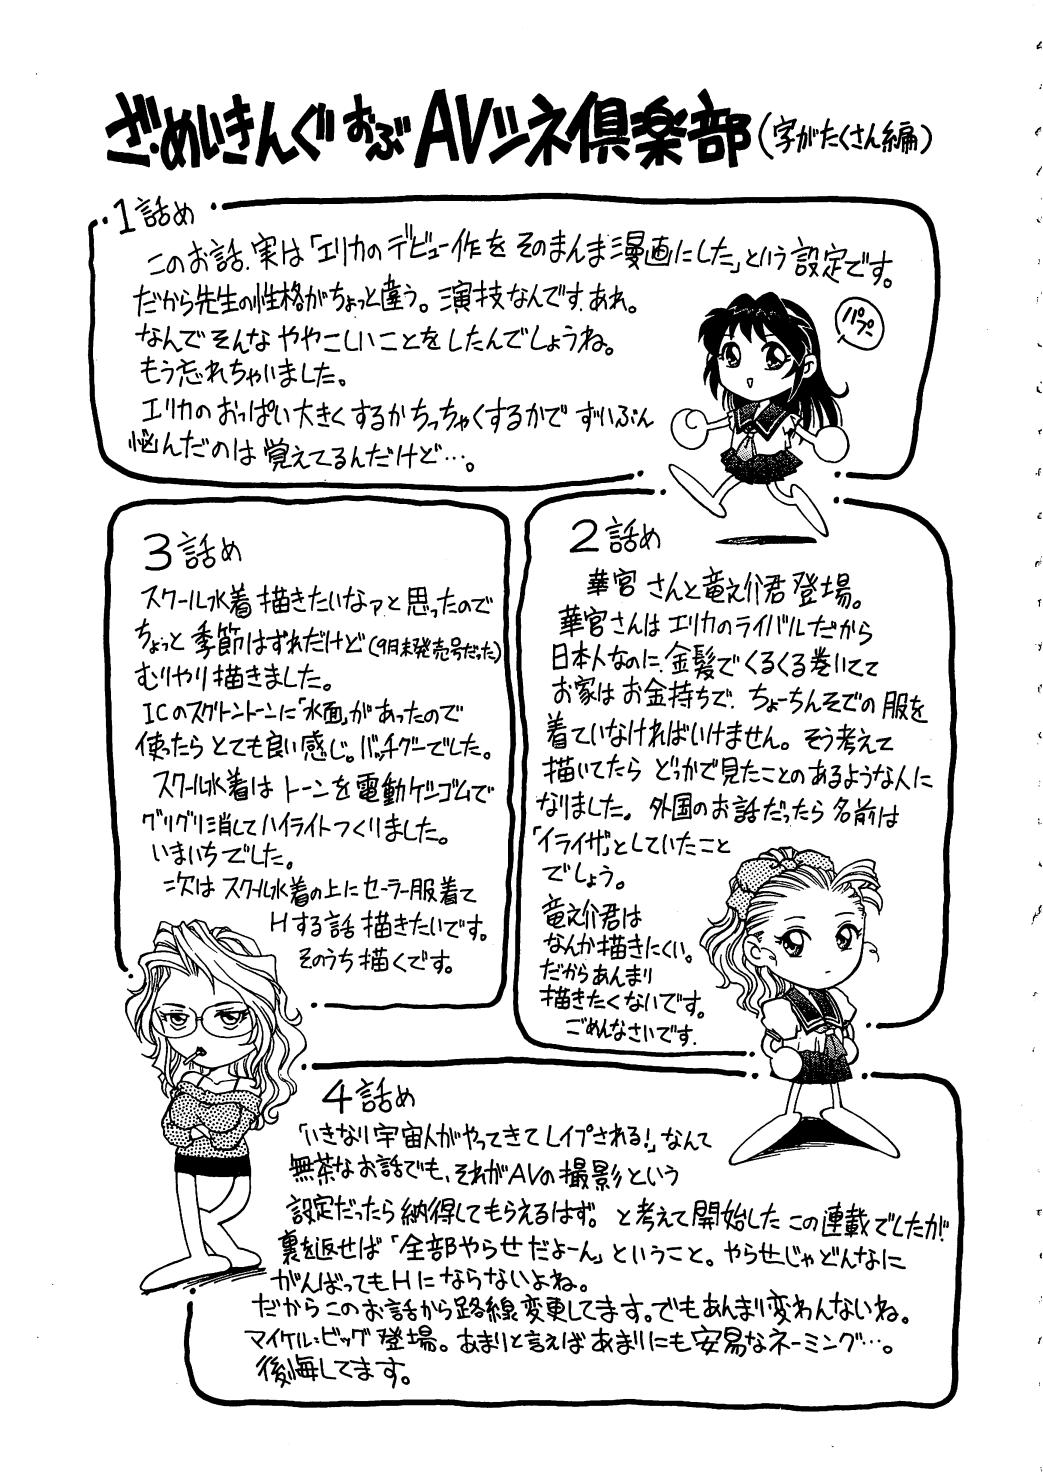 ざ・めいきんぐ おぶ AVシネ倶楽部（字がたくさん編）
1話め
このお話、実は「エリカのデビュー作をそのまんま漫画にした」という設定です。
だから先生の性格がちょっと違う。演技なんです、あれ。
なんでそんな ややこしいことをしたんでしょうね。
もう忘れちゃいました。
エリカのおっぱい大きくするかちっちゃくするかで ずいぶん
悩んだのは覚えてるんだけど…。
パプペ
2話め
華宮さんと竜之介君登場。
華宮さんはエリカのライバルだから
日本人なのに、金髪でくるくる巻いてて
お家はお金持ちで、ちょーちんそでの服を
着ていなければいけません。そう考えて
描いてたら どっかで見たことのあるような人に
なりました。外国のお話だったら名前は
「イライザ」としていたこと
でしょう。
竜之介君は
なんか描きにくい。
だからあんまり
描きたくないです。
ごめんなさいです。
3話め
スクール水着描きたいなァと思ったので
ちょっと季節はずれだけど（9月末発売号だった）
むりやり描きました。
ICのスクリーントーンに「水面」があったので
使ったら とても良い感じ。バッチグーでした。
スクール水着はトーンを電動ケシゴムで
グリグリ消してハイライトつくりました。
いまいちでした。
次はスクール水着の上にセーラー服着て
Hする話描きたいです。
そのうち描くです。
4話め
「いきなり宇宙人がやってきてレイプされる！」なんて
無茶なお話でも、それがAVの撮影という
設定だったら納得してもらえるはず。と考えて開始したこの連載でしたが、
裏を返せば「全部やらせだよーん」ということ。やらせじゃどんなに
がんばってもHにならないよね。
だからこのお話から路線変更してます。でもあんまり変わんないね。
マイケル=ビッグ登場。あまりと言えばあまりにも安易なネーミング…。
後悔してます。